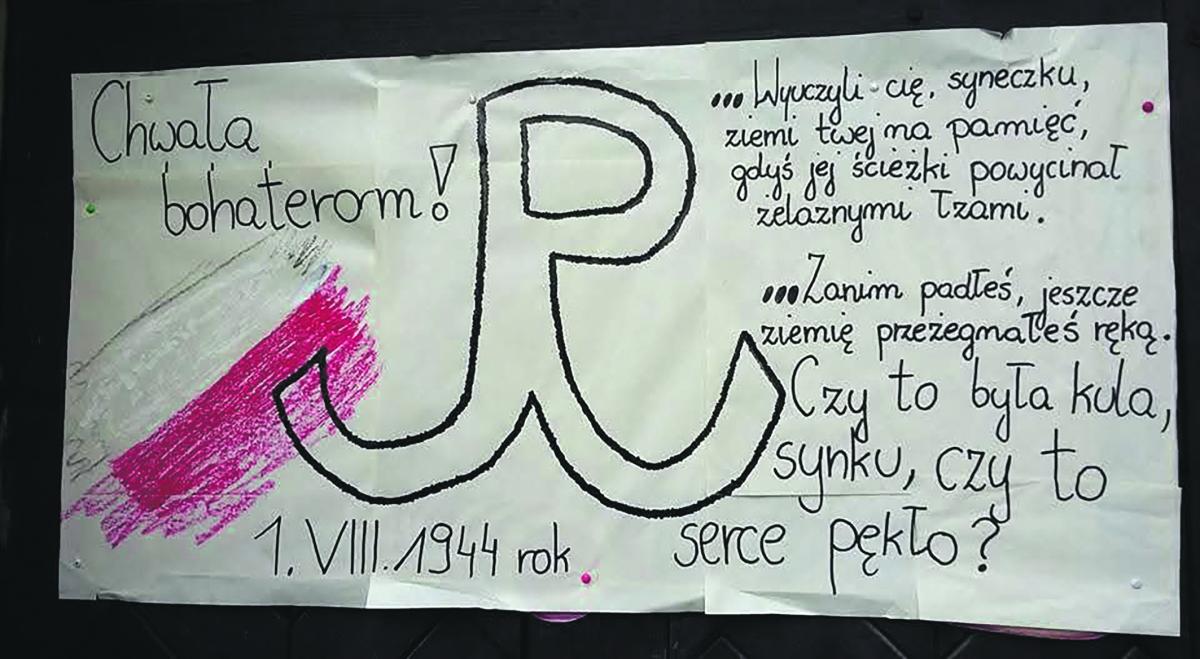 Chwała
bohaterom!
...Wyuczyli cię, syneczku,
ziemi twej na pamięć,
gdyś jej ścieżki powycinał
żelaznymi łzami.
...Zanim padłeś, jeszcze
ziemię przeżegnałeś ręką.
Czy to była kula,
synku, czy to
serce pękło?
1. VIII. 1944 rok